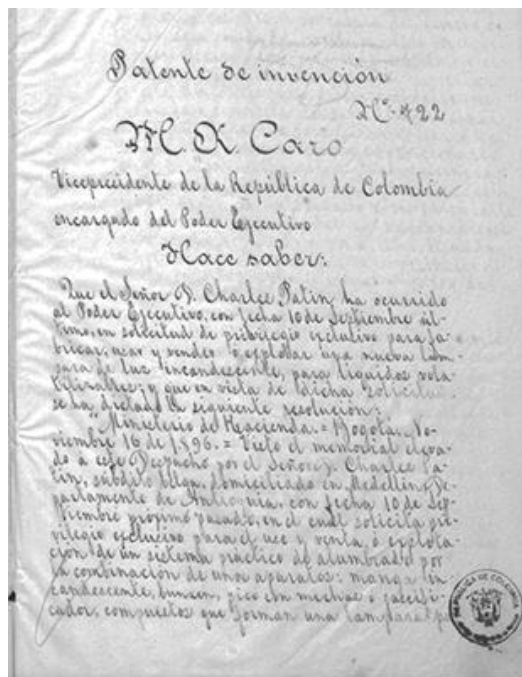 Patente de invención
Nº 422
M A Caro
Vicepresidente de la República de Colombia
encargado del Poder Ejecutivo
Hace saber:
Que el Señor D. Charles Patin ha ocurrido
al Poder Ejecutivo, con fecha 10 de Septiembre úl-
timo, en solicitud de privilegio exclusivo para fa-
bricar, usar y vender o explotar una nueva lám-
para de luz incandescente, para líquidos vola-
tilizables; y que en vista de dicha solicitud
se ha dictado la siguiente resolución:
"Ministerio de Hacienda. = Bogotá, No-
viembre 16 de 1896. = Visto el memorial eleva-
do a este Despacho por el Señor D. Charles Pa-
tin, súbdito belga, domiciliado en Medellín, De-
partamento de Antioquia, con fecha 10 de Sep-
tiembre próximo pasado, en el cual solicita pri-
vilegio exclusivo para el uso y venta, o explota-
ción de un sistema práctico de alumbrado por
la combinación de unos aparatos: manga in-
candescente, bunsen, pico con mechas o gasifi-
cador, compuestos que forman una lámpara
REPÚBLICA DE COLOMBIA